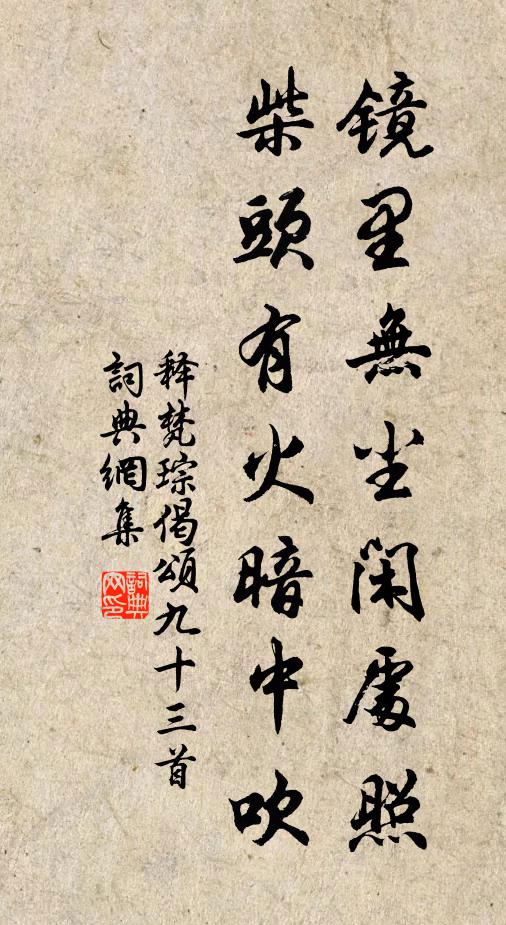 镜里無尘閑處照
柴頭有火暗中吹
释梵琮偈頌九十三首
詞典網集
詞典网印